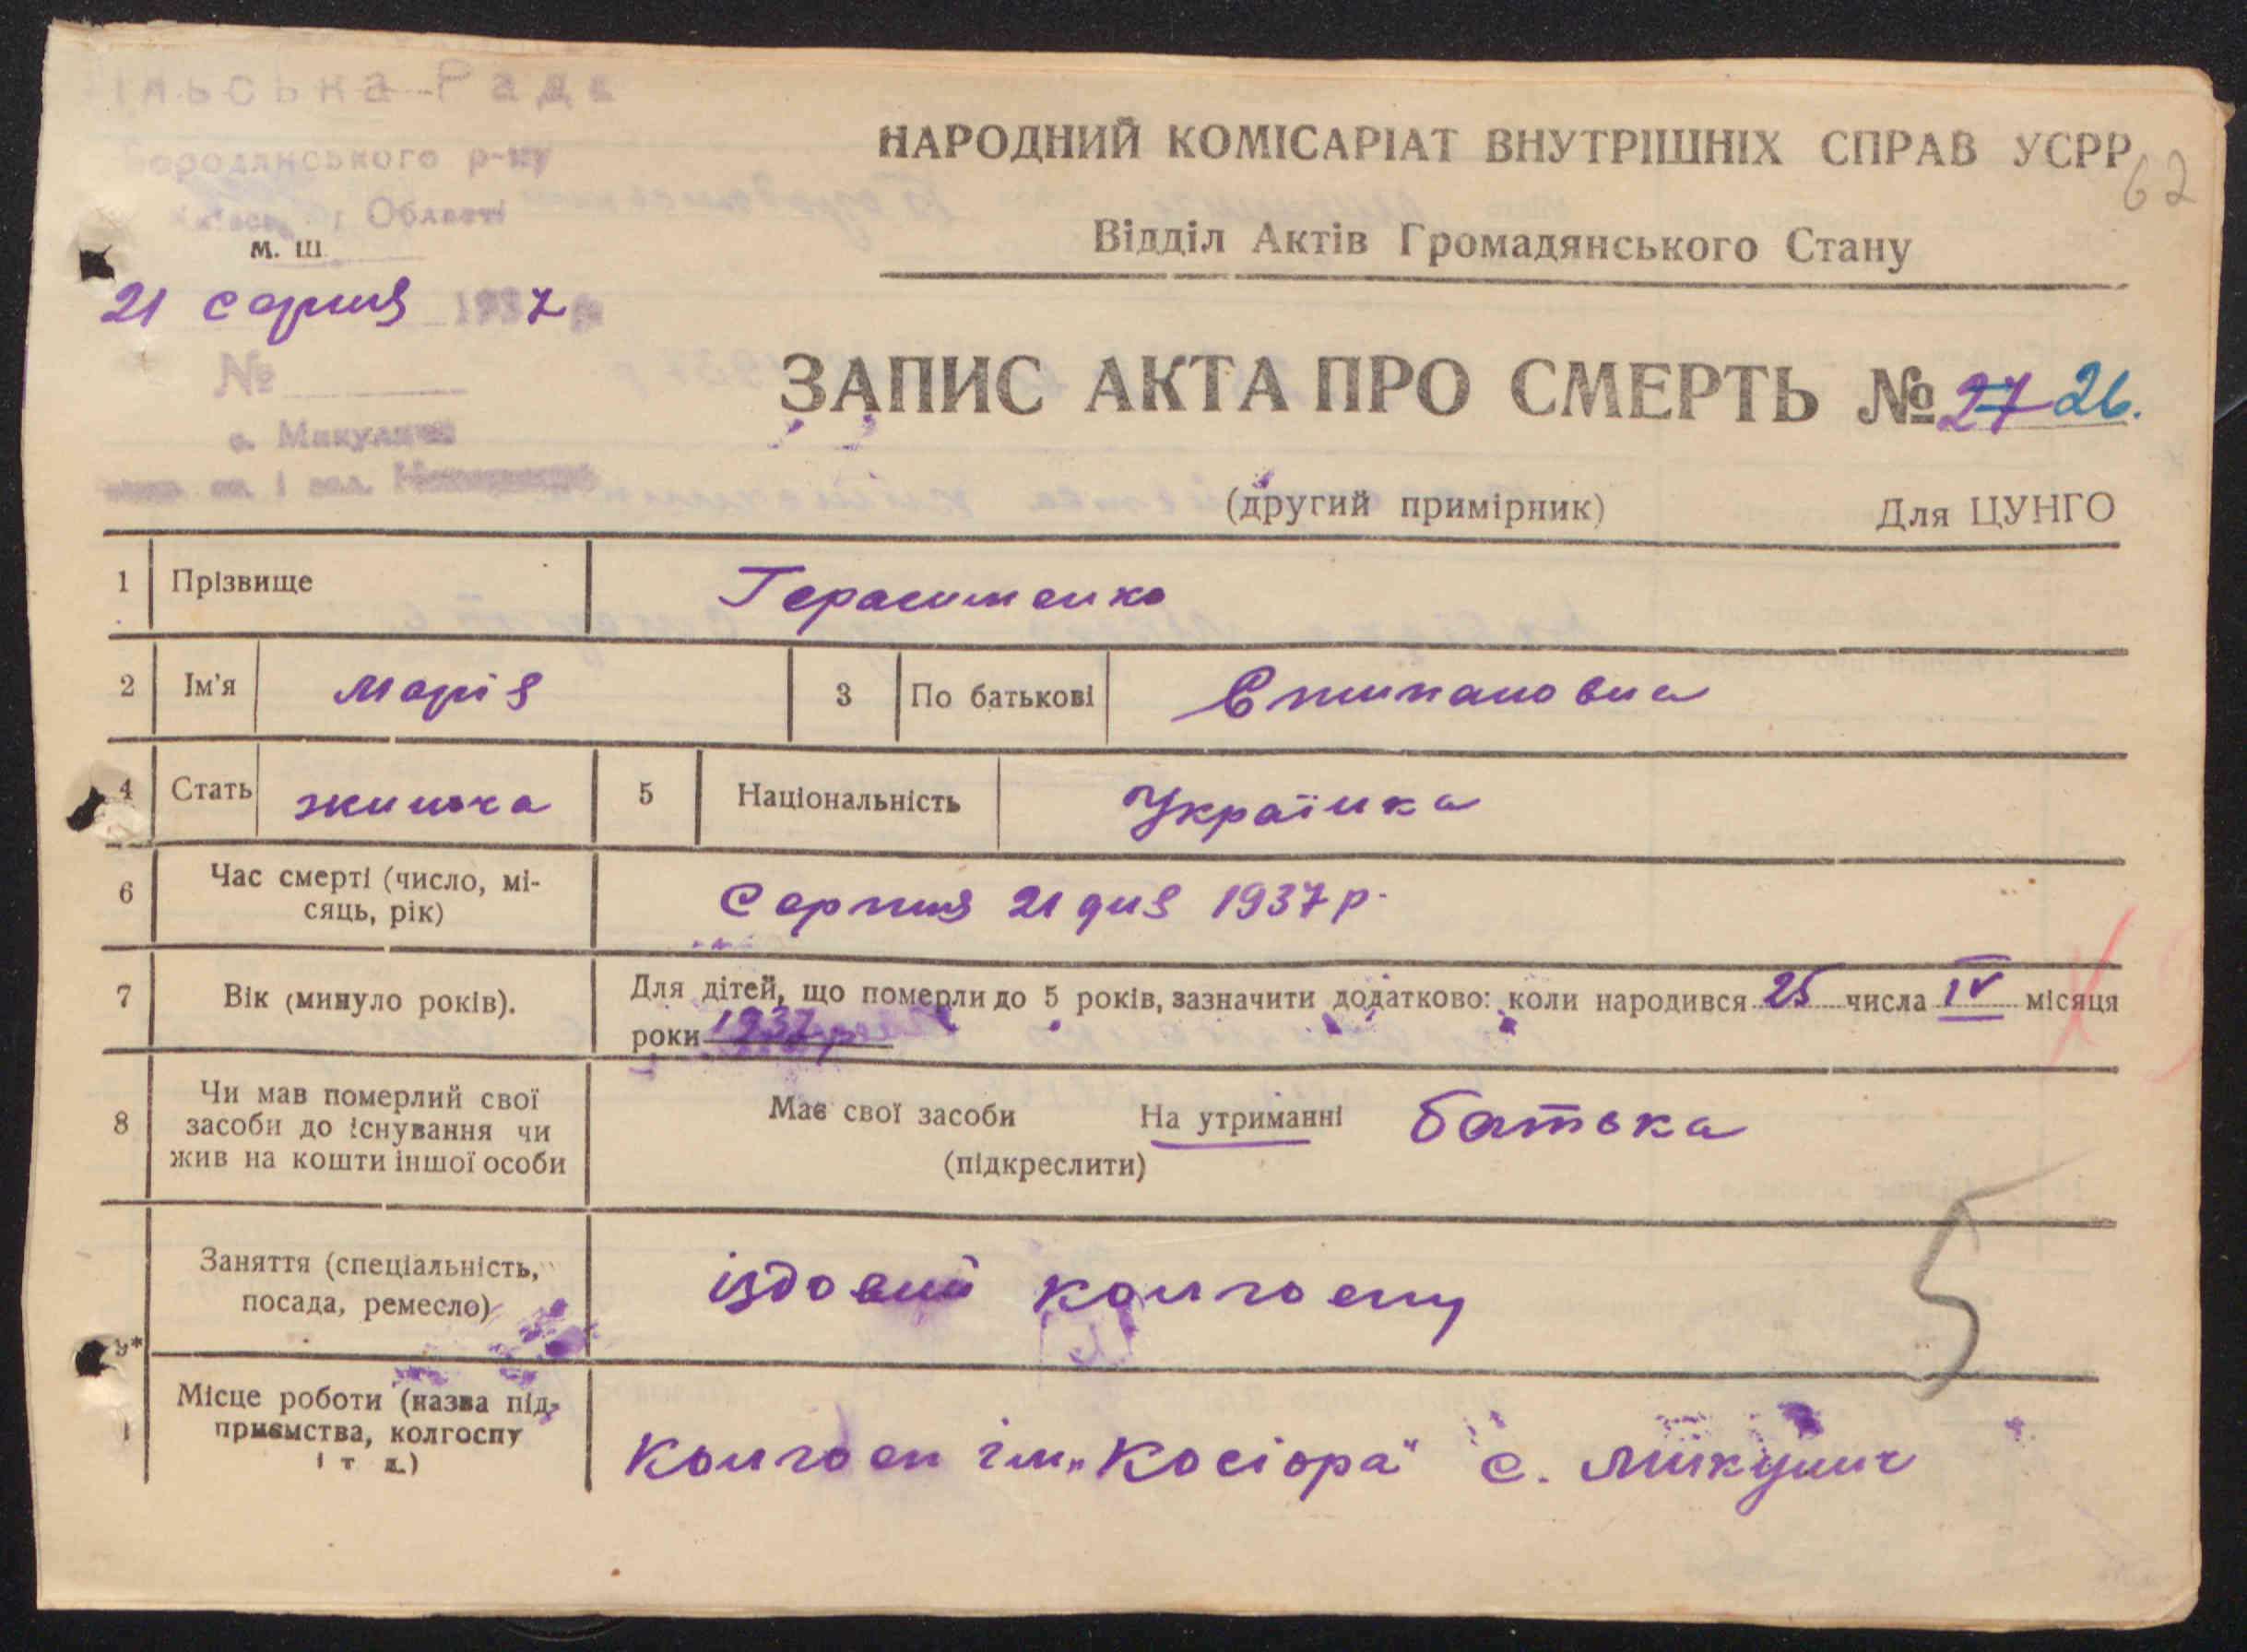 ільська Рада
Бородянського р-ну
Області
М. Ш.
21 серпня 1937 р
№
с. Микуличі
НАРОДНИЙ КОМІСАРІАТ ВНУТРІШНІХ СПРАВ УСРР
62
Відділ Актів Громадянського Стану
ЗАПИС АКТА ПРО СМЕРТЬ № 27 26.
(другий примірник) Для ЦУНГО
1 Прізвище Герасименко
2 Ім'я Марія 3 По батькові Степановна
4 Стать жинка 5 Національність Українка
6 Час смерті (число, мі-
сяць, рік) Серпня 21 дня 1937 р.
7 Вік (минуло років). Для дітей, що померли до 5 років, зазначити додатково: коли народився 25 числа IV місяця
роки 1937 р
8 Чи мав померлий свої
засоби до існування чи
жив на кошти іншої особи
Має свої засоби На утриманні батька
(підкреслити)
Заняття (спеціальність,
посада, ремесло) іздовий колгоспу
5
9*
Місце роботи (назва під-
приємства, колгоспу
і т д.)
Колгосп ім. „Косіора" с. Микулич